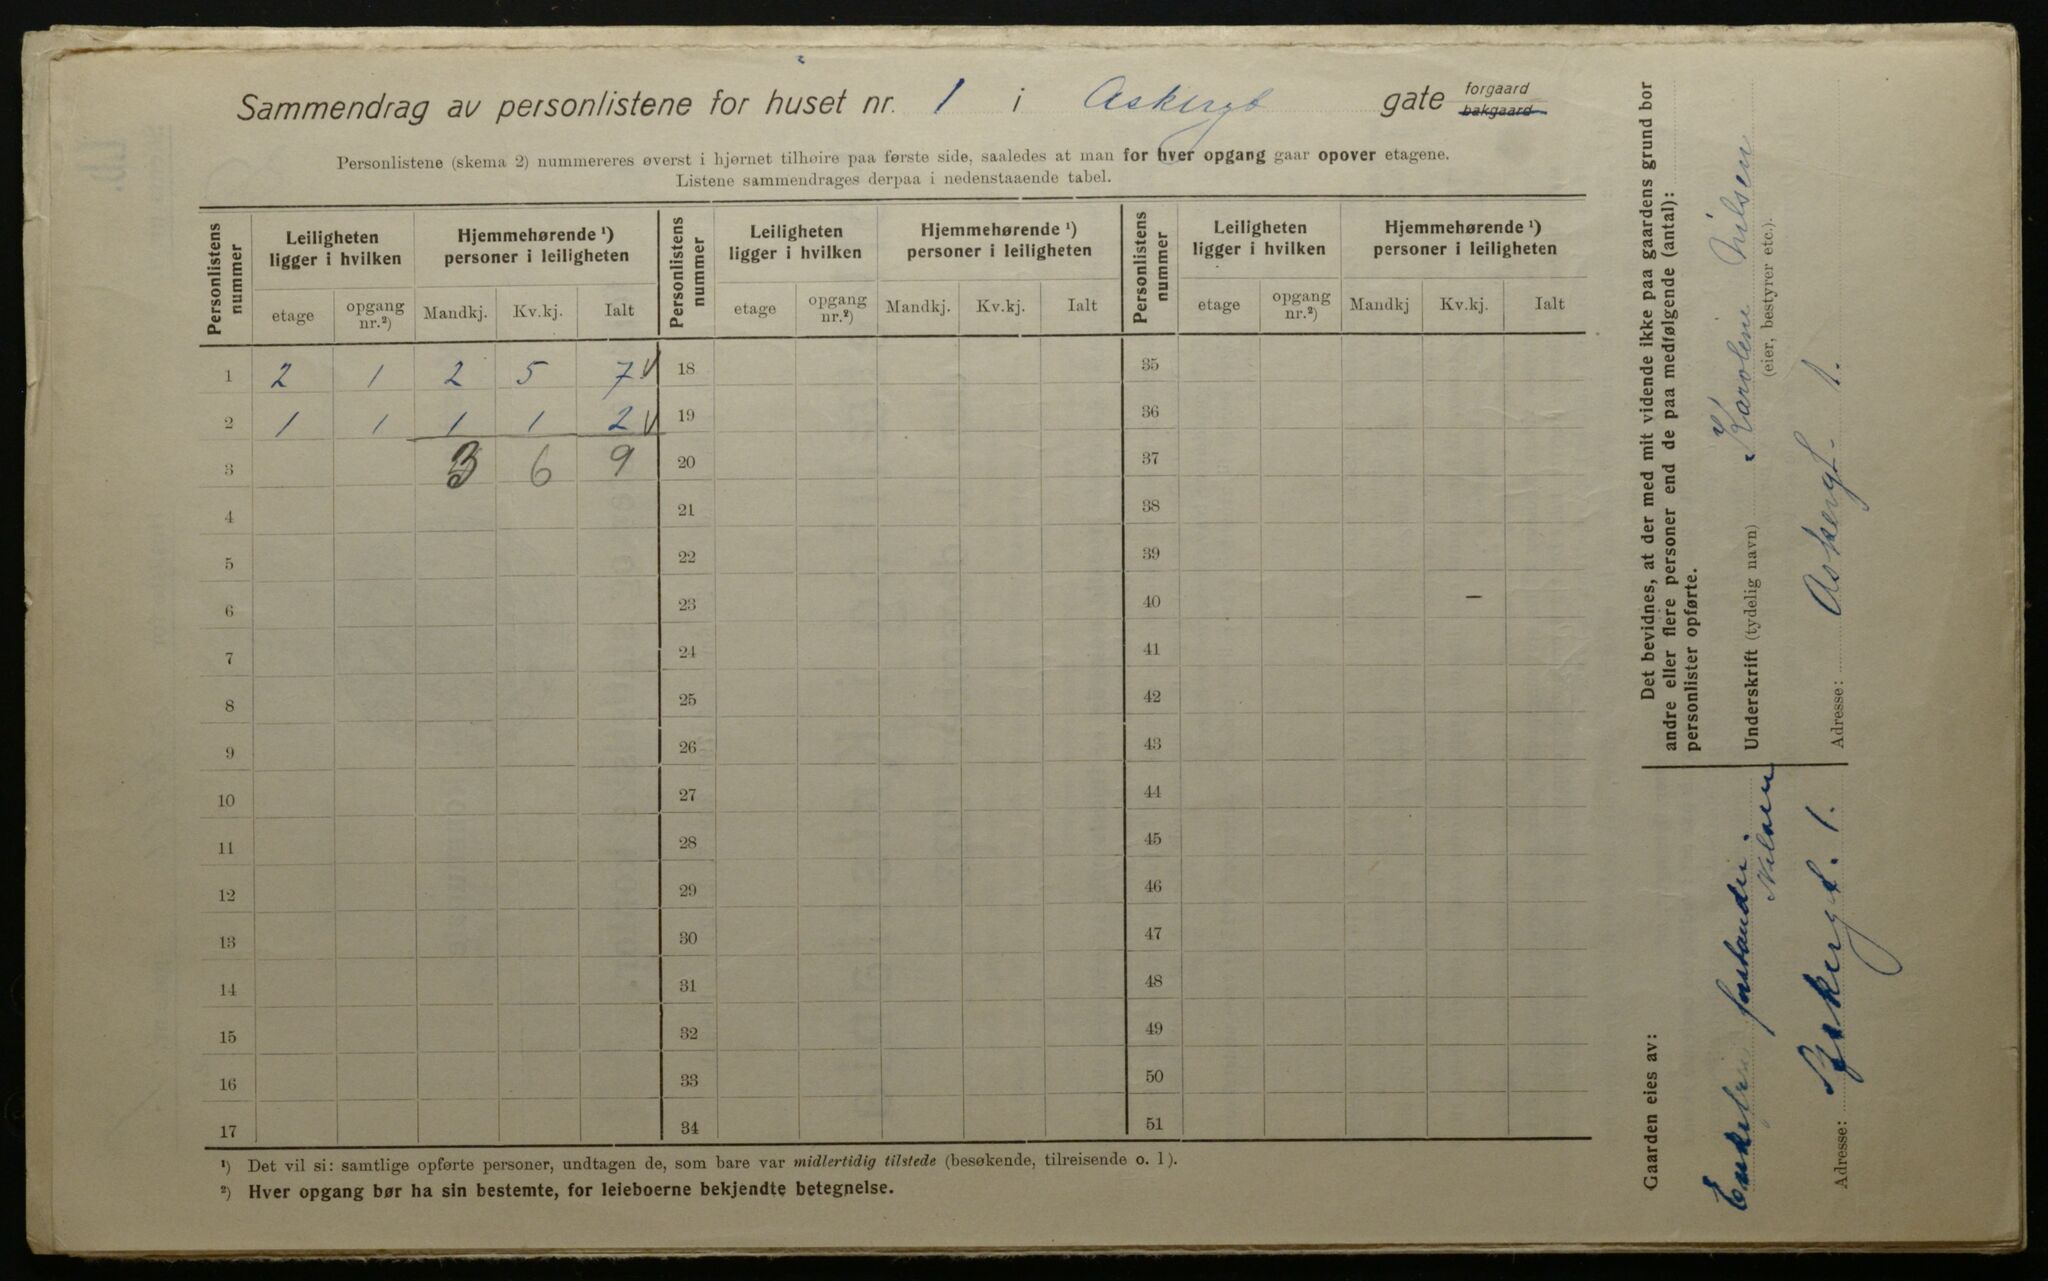 Sammendrag av personlistene for huset nr. 1 i Askergt gate forgaard bakgaard
Personlistene (skema 2) nummereres øverst i hjørnet tilhøire paa første side, saaledes at man for hver opgang gaar opover etagene.
Listene sammendrages derpaa i nedenstaaende tabel.
Personlistens nummer | Leiligheten ligger i hvilken | Hjemmehørende ¹) personer i leiligheten | Personlistens nummer | Leiligheten ligger i hvilken | Hjemmehørende ¹) personer i leiligheten | Personlistens nummer | Leiligheten ligger i hvilken | Hjemmehørende ¹) personer i leiligheten
etage | opgang nr.²) | Mandkj. | Kv.kj. | Ialt | etage | opgang nr.²) | Mandkj. | Kv.kj. | Ialt | etage | opgang nr.²) | Mandkj | Kv.kj. | Ialt
1 | 2 | 1 | 2 | 5 | 7 √ | 18 | 35
2 | 1 | 1 | 1 | 1 | 2 √ | 19 | 36
3 | 3 | 6 | 9 | 20 | 37
4 | 21 | 38
5 | 22 | 39
6 | 23 | 40 | –
7 | 24 | 41
8 | 25 | 42
9 | 26 | 43
10 | 27 | 44
11 | 28 | 45
12 | 29 | 46
13 | 30 | 47
14 | 31 | 48
15 | 32 | 49
16 | 33 | 50
17 | 34 | 51
¹) Det vil si: samtlige opførte personer, undtagen de, som bare var midlertidig tilstede (besøkende, tilreisende o. l.).
²) Hver opgang bør ha sin bestemte, for leieboerne bekjendte betegnelse.
Det bevidnes, at der med mit vidende ikke paa gaardens grund bor
andre eller flere personer end de paa medfølgende (antal):
personlister opførte.
Underskrift (tydelig navn) Karolene Nilsen
(eier, bestyrer etc.).
Adresse: Askergt. 1.
Gaarden eies av:
Enkefru forstander
Nilsen
Adresse: Askergt. 1.